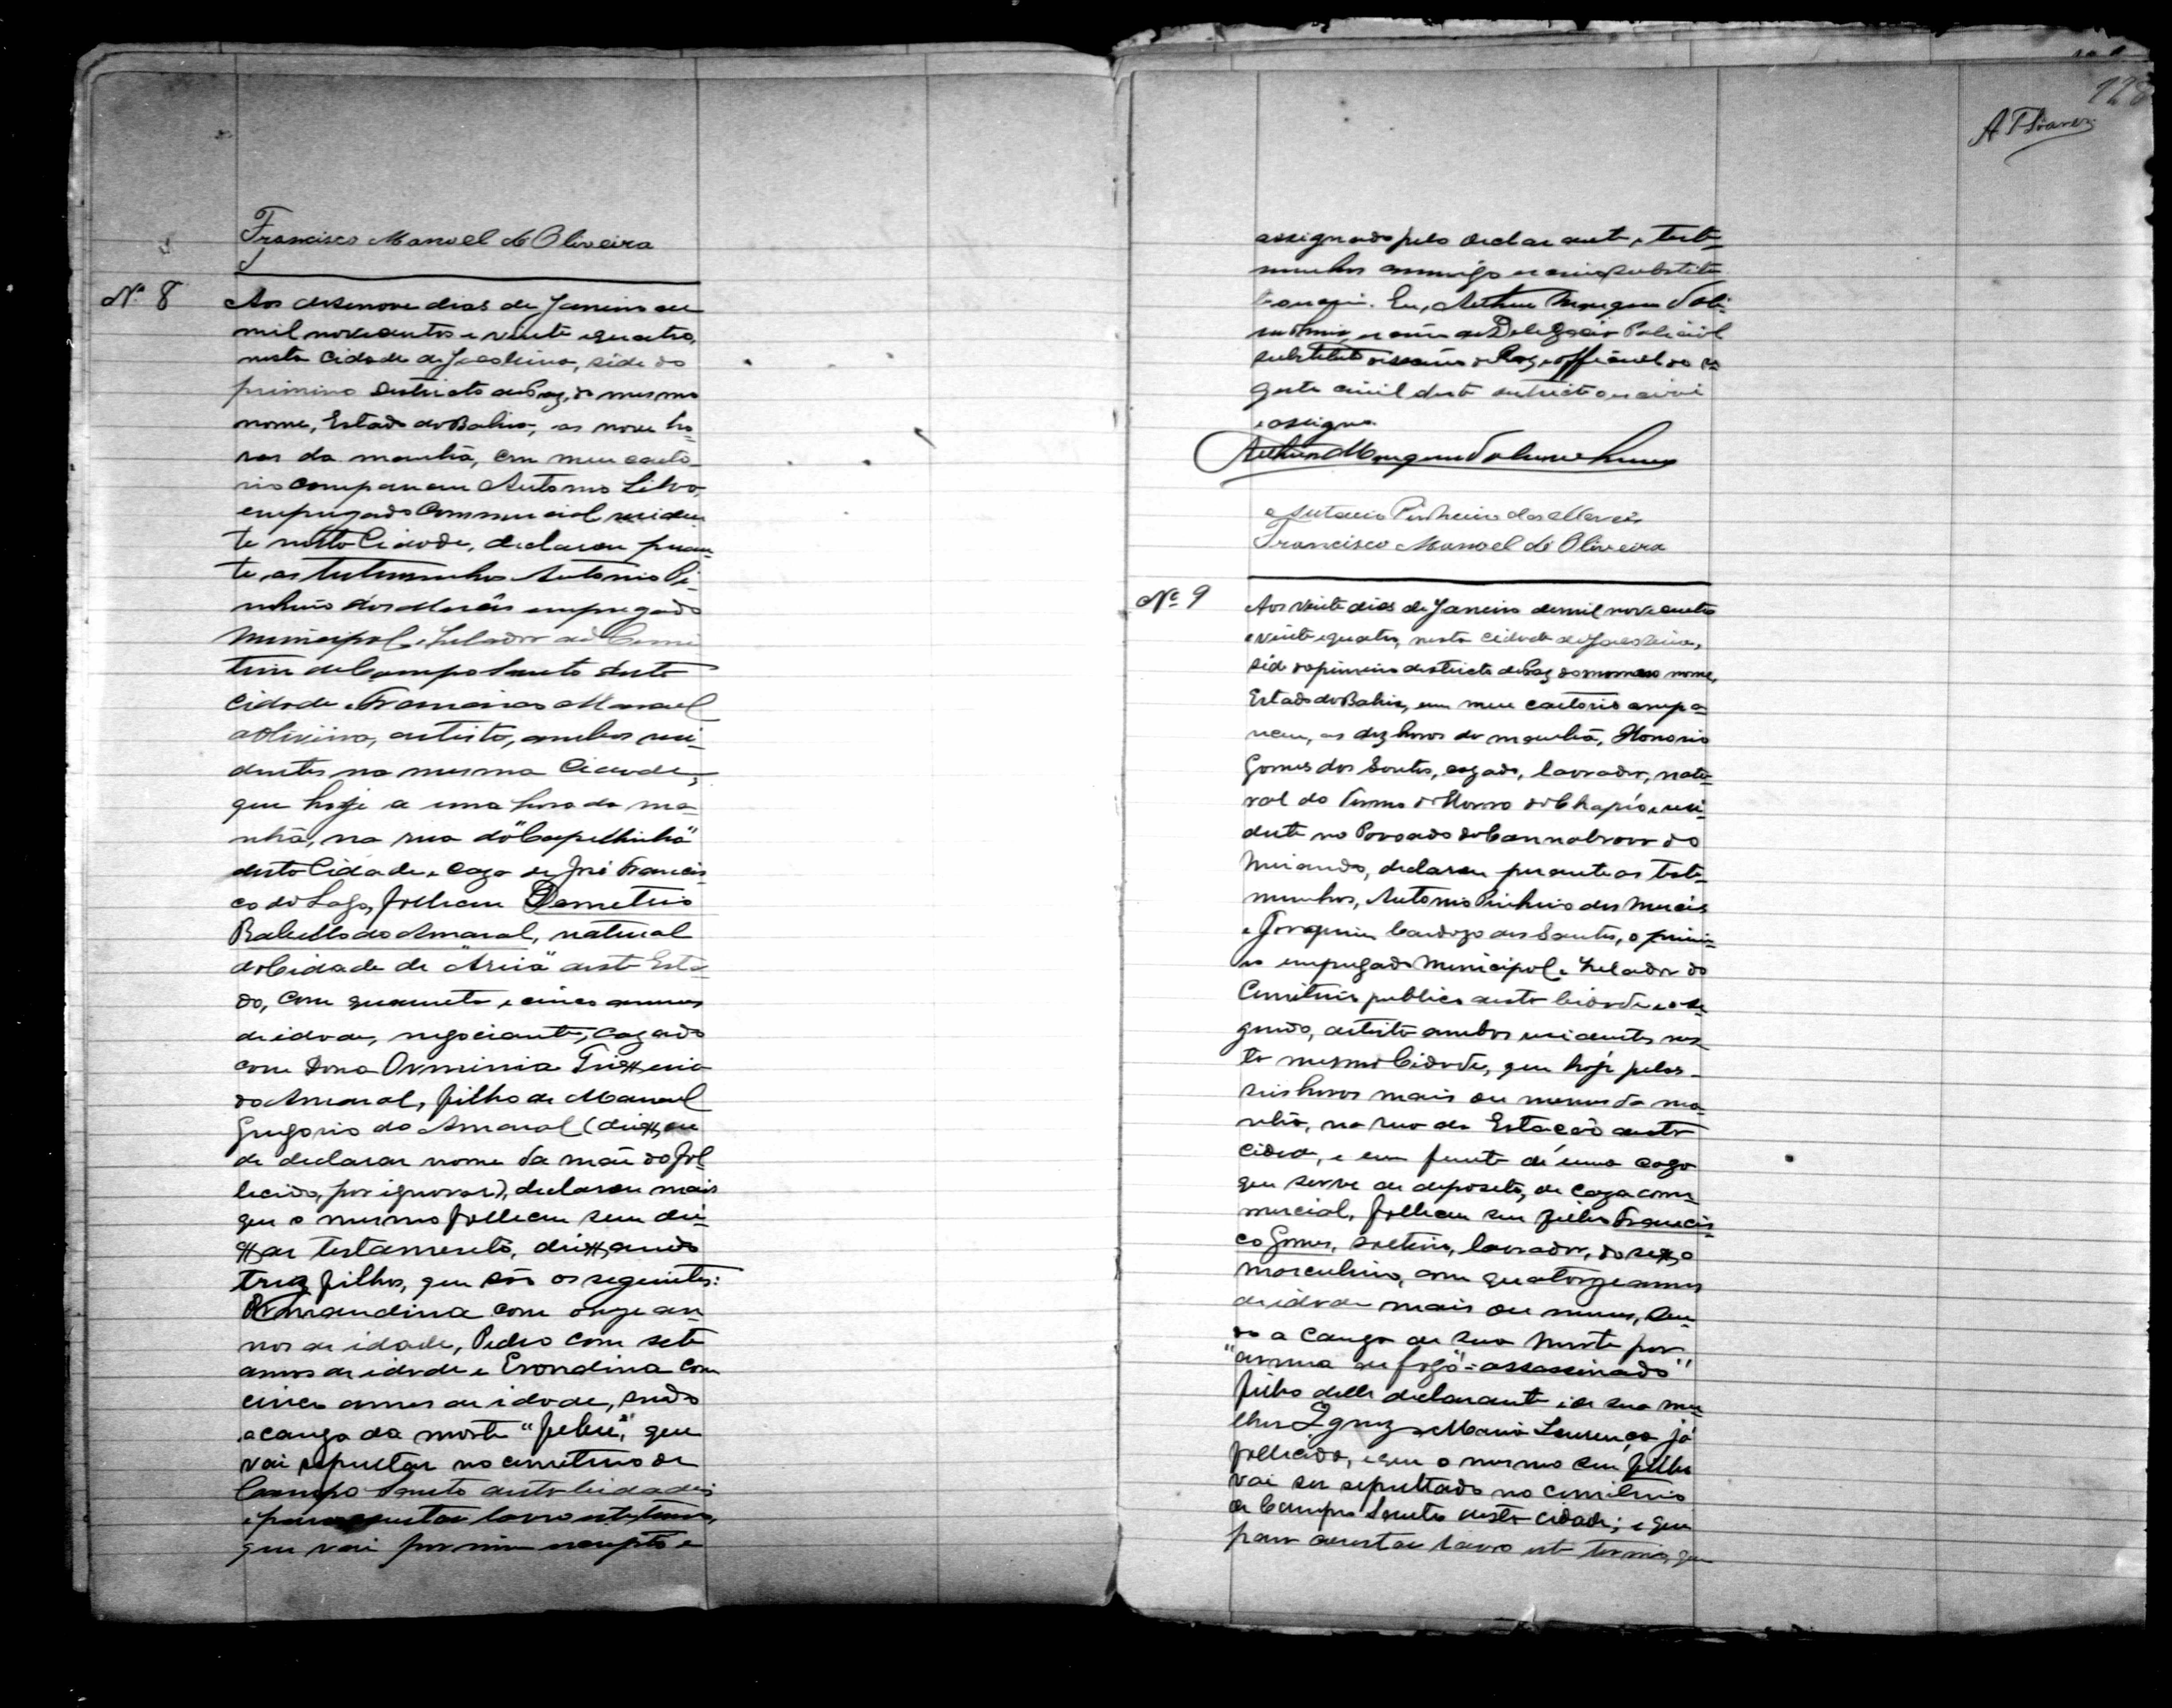 Francisco Manoel de Oliveira
Nº 8
Aos desenove dias de Janeiro de
mil novecentos e vinte e quatro,
nesta Cidade de Jacobina, séde do
primeiro districto de Paz, do mesmo
nome, Estado da Bahia, as nove ho-
ras da manhã, em meu carto-
rio compareceu Antonio Silva,
empregado Commercial residen-
te nesta Cidade, declarou peran-
te as testemunhas Antonio Pi-
nheiro dos Marais empregado
Municipal e Zelador do Cemi-
terio de Campo Santo desta
Cidade e Francisco Manoel
de Oliveira, artista, ambos resi-
dentes na mesma Cidade,
que hoje a uma hora da ma-
nhã, na rua do "Capellinha"
desta Cidade e caza de José Francis-
co do Lago, falleceu Demetrio
Rabello do Amaral, natural
da Cidade de "Areia" deste Esta-
do, com quarenta e cinco annos
de idade, negociante, cazado
com Dona Orminia
do Amaral, filho de Manoel
Gregorio do Amaral (deixou
de declarar nome da mãe do fal-
lecido, por ignorar), declarou mais
que o mesmo falleceu sem dei-
xar testamento, deixando
trez filhos, que são os seguintes:
com onze an-
nos de idade, Pedro com sete
annos de idade e Erondina com
cinco annos de idade, sendo
a cauza da morte "febre," que
vai sepultar no cemiterio de
Campo Santo desta Cidade;
e para constar lavro este termo,
que vai por mim escripto e
128
A. Tavares
assignado pelo declarante e teste-
munhas commigo escrivão substituto
que escrevi. Eu, Arthur
escrivão da Delegacia Policial
substituto do escrivão de Paz e official do re-
gisto civil deste districto escrevi
e assigno.
Antonio Pinheiro dos Marais
Francisco Manoel de Oliveira
Nº 9
Aos vinte dias de Janeiro de mil novecentos
e vinte e quatro, nesta cidade de Jacobina,
séde do primeiro districto de Paz do mesmo nome,
Estado da Bahia, em meu cartorio compa-
receu, as dez horas da manhã, Honorio
Gomes dos Santos, cazado, lavrador, natu-
ral do Termo do Morro do Chapéo e resi-
dente no Povoado de Cannabrava do
Miranda, declarou perante as teste-
munhas, Antonio Pinheiro dos Marais
e Joaquim Cardozo dos Santos, o primei-
ro empregado Municipal e Zelador do
Cemiterio publico desta Cidade e o se-
gundo, artista ambos residentes nes-
ta mesma Cidade, que hoje pelas
seis horas mais ou menos da ma-
nhã, na rua da Estação desta
cidade, e em frente de uma caza
que serve de deposito, de caza com-
mercial, falleceu seu filho Francis-
co Gomes, solteiro, lavrador, do sexo
masculino, com quatorze annos
de idade mais ou menos, sen-
do a cauza de sua morte por
"arma de fogo" = assassinado"
filho delle declarante e de sua mu-
lher Ignez Maria Lourença já
fallecida, e que o mesmo seu filho
vai ser sepultado no cemiterio
de Campo Santo desta cidade; e que
para constar lavro este termo, que